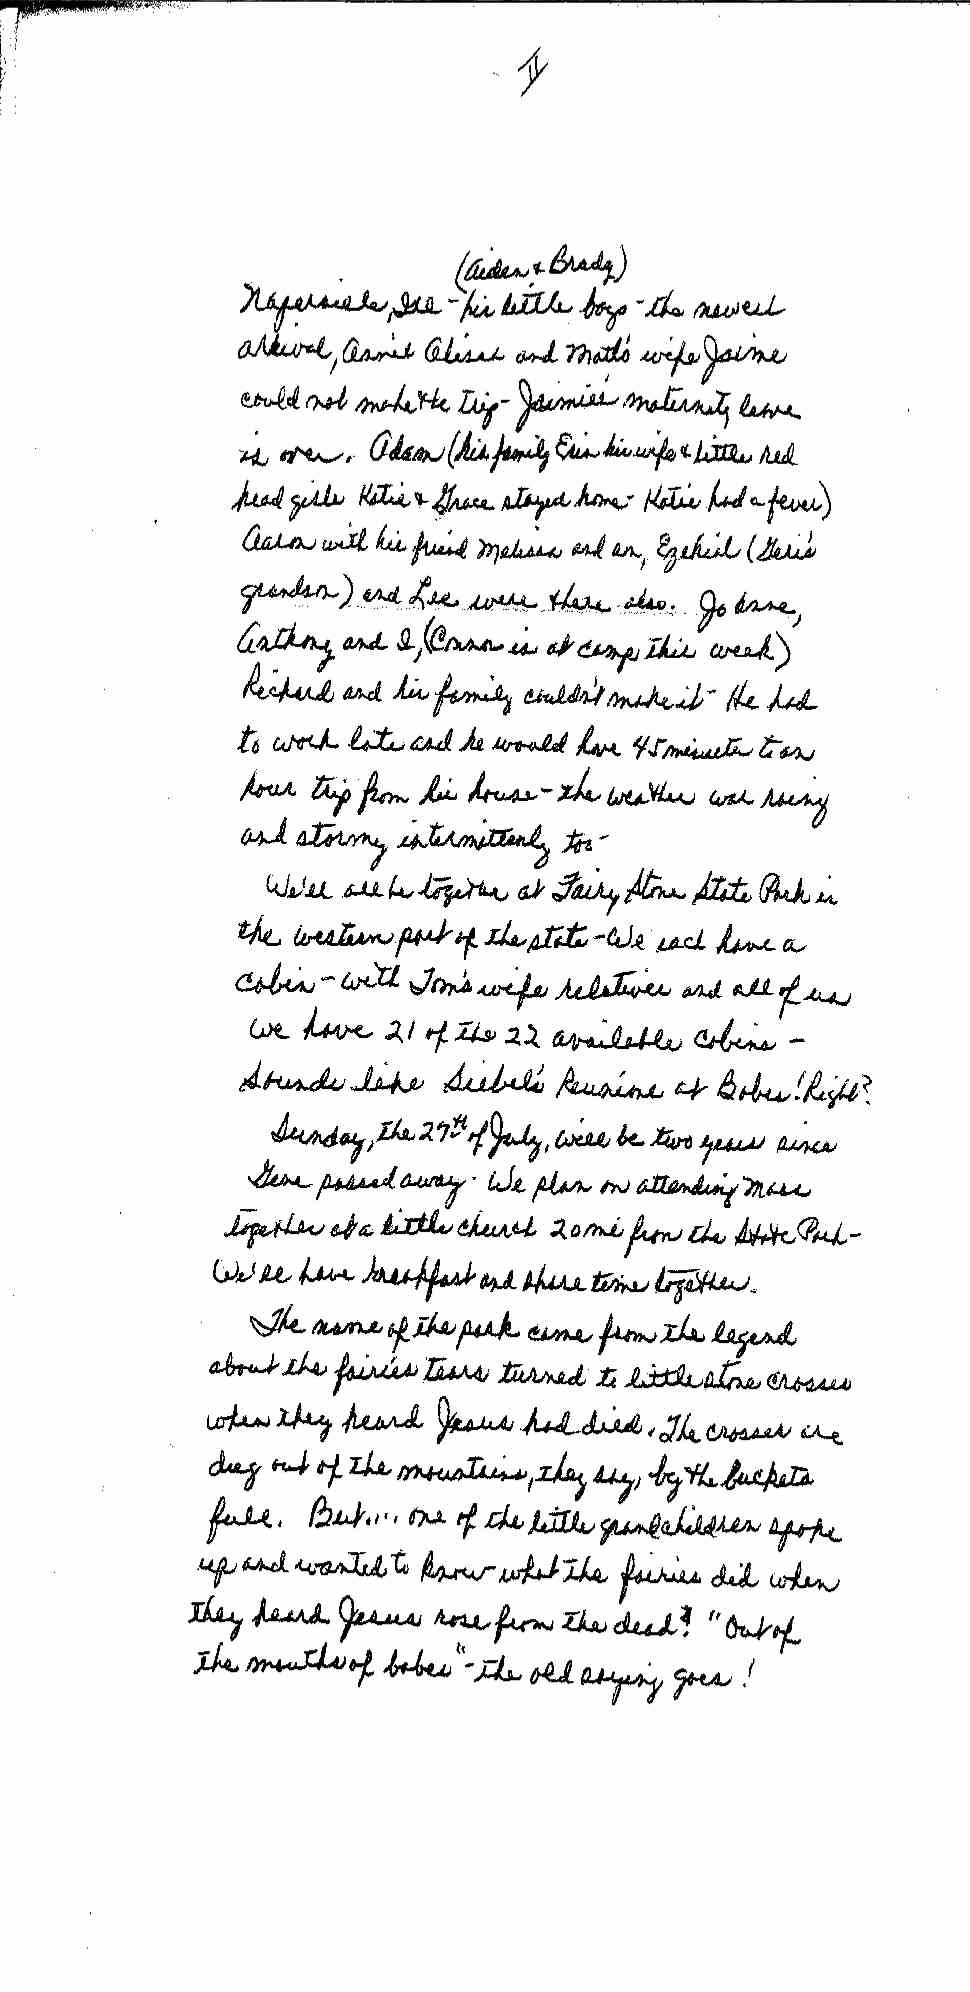 II
(Aiden & Brady)
Naperville, Ill - his little boys - the newest
arrival, Annie and Matt's wife Jaime
could not make the trip - Jaimie's maternity leave
is over. Adam (his family Erin his wife & little red
head girls Katie & Grace stayed home - Katie had a fever)
Aaron with his friend Melissa and son, Ezekial (Geri's
grandson) and Lee were there also. Jo Anne,
Anthony and I, (Connor is at camp this week)
Richard and his family couldn't make it - He had
to work late and he would have 45 minute to an
hour trip from his house - the weather was rainy
and stormy intermittenly too -
We'll all be together at Fairy Stone State Park in
the western part of the state - We each have a
cabin - with Tom's wife relatives and all of us
we have 21 of the 22 available cabins -
Sounds like Siebel's Reunions at Bober! Right?
Sunday, the 27th of July, will be two years since
Gene passed away - We plan on attending Mass
together at a little church 20 mi from the State Park -
We'll have breakfast and share time together.
The name of the park came from the legend
about the fairies tears turned to little stone crosses
when they heard Jesus had died. The crosses are
dug out of the mountains, they say, by the buckets
full. But.... one of the little grandchildren spoke
up and wanted to know what the fairies did when
they heard Jesus rose from the dead? "Out of
the mouths of babes" - the old saying goes!